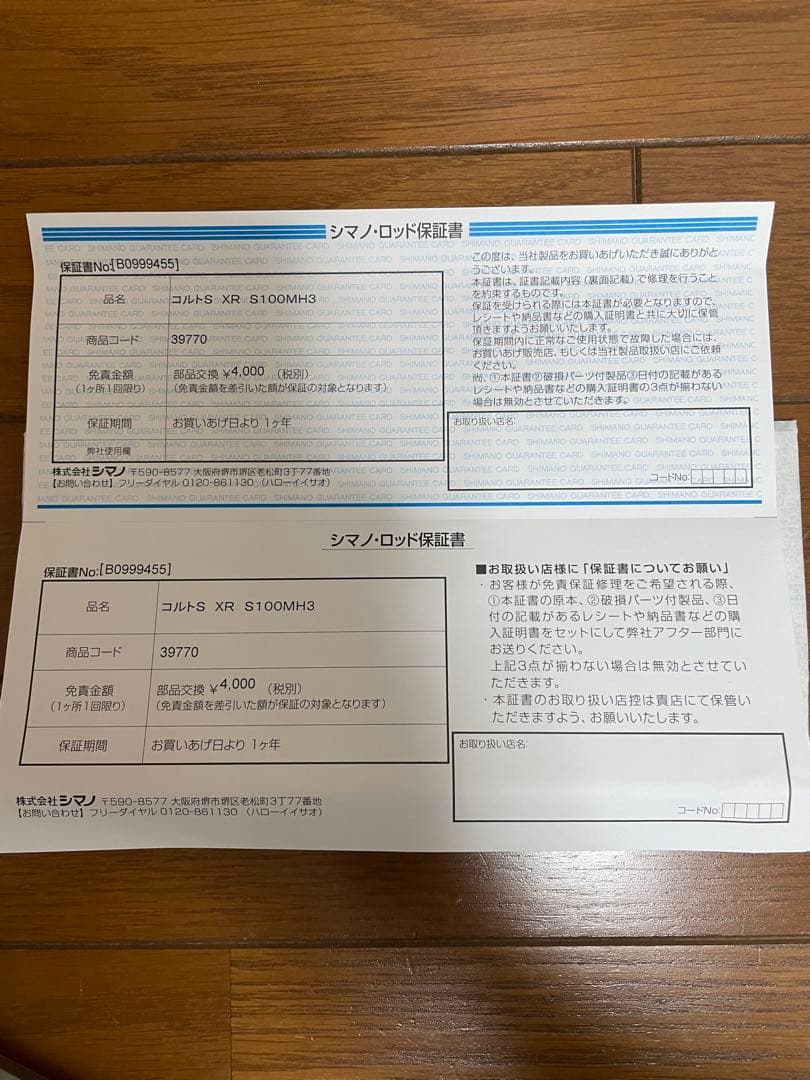 シマノ・ロッド保証書
SHIMANO GUARANTEE CARD
保証書No:[B0999455]
品名 コルトS XR S100MH3
商品コード 39770
免責金額 部品交換 ¥4,000 (税別)
(1ヶ所1回限り) (免責金額を差引いた額が保証の対象となります)
保証期間 お買いあげ日より 1ヶ年
弊社使用欄
株式会社シマノ 〒590-8577 大阪府堺市堺区老松町3丁77番地
【お問い合わせ】フリーダイヤル 0120-861130 (ハローイイサオ)
この度は、当社製品をお買いあげいただき誠にありがと
うございます。
本証書は、証書記載内容(裏面記載)で修理を行うこと
を約束するものです。
保証を受けられる際には本証書が必要となりますので、
レシートや納品書などの購入証明書と共に大切に保管
頂きますようお願いいたします。
保証期間内に正常なご使用状態で故障した場合には、
お買いあげ販売店、もしくは当社製品取扱い店にご依頼
ください。
尚、①本証書②破損パーツ付製品③日付の記載がある
レシートや納品書などの購入証明書の3点が揃わない
場合は無効とさせていただきます。
お取り扱い店名:
コードNo:
シマノ・ロッド保証書
保証書No:[B0999455]
品名 コルトS XR S100MH3
商品コード 39770
免責金額 部品交換 ¥4,000 (税別)
(1ヶ所1回限り) (免責金額を差引いた額が保証の対象となります)
保証期間 お買いあげ日より 1ヶ年
株式会社シマノ 〒590-8577 大阪府堺市堺区老松町3丁77番地
【お問い合わせ】フリーダイヤル 0120-861130 (ハローイイサオ)
■お取扱い店様に「保証書についてお願い」
・お客様が免責保証修理をご希望される際、
①本証書の原本、②破損パーツ付製品、③日
付の記載があるレシートや納品書などの購
入証明書をセットにして弊社アフター部門に
お送りください。
上記3点が揃わない場合は無効とさせてい
ただきます。
・本証書のお取り扱い店控は貴店にて保管い
ただきますよう、お願いいたします。
お取り扱い店名:
コードNo: